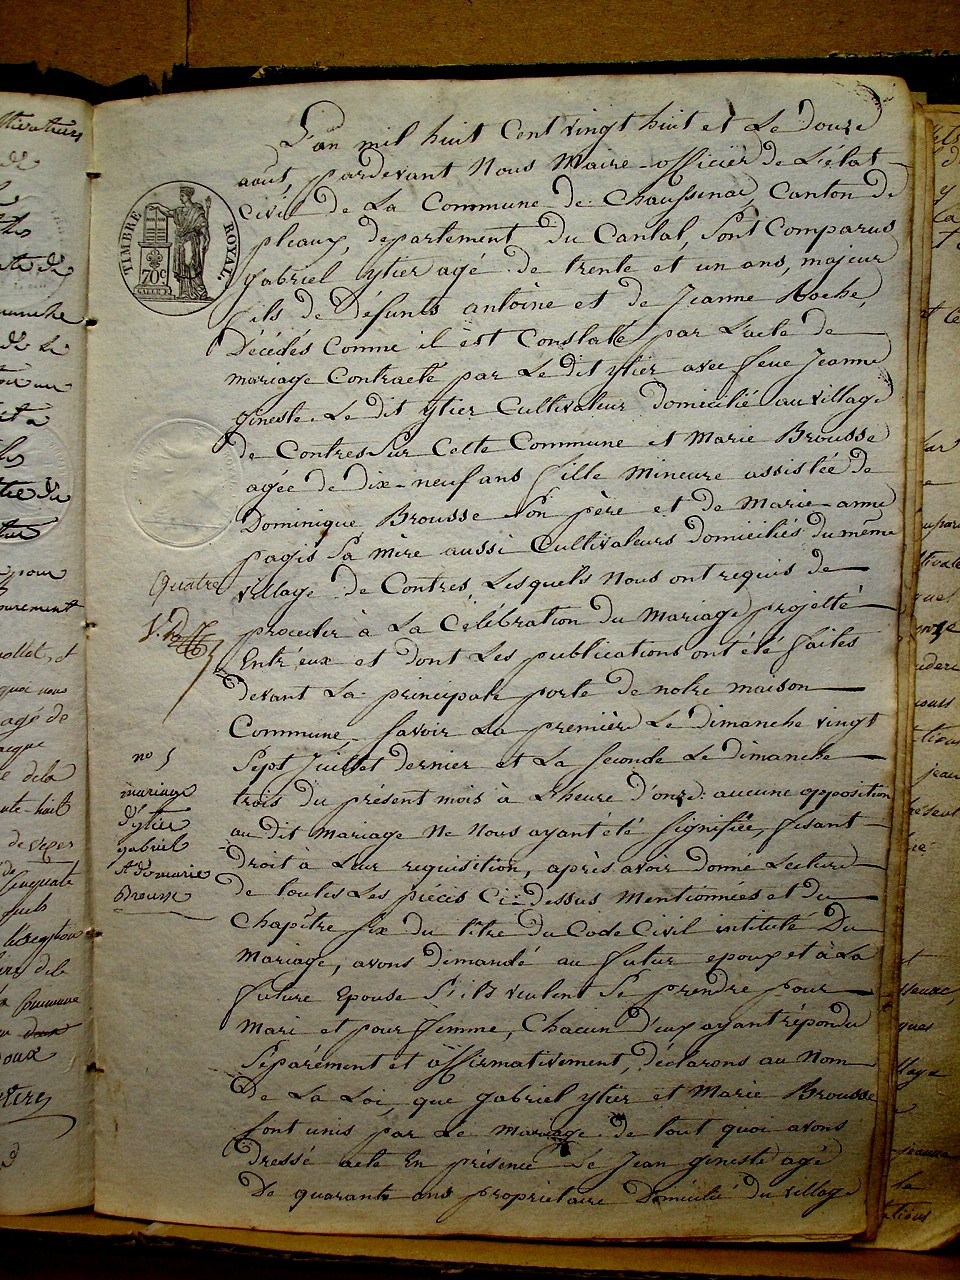 L'an mil huit Cent vingt huit et Le douze
aout, pardevant Nous Maire officier de L'état
Civil de La Commune de Chaussenac, Canton de
pleaux, departement du Cantal, Sont Comparus
gabriel ytier agé de trente et un ans, majeur
fils de défunts antoine et de Jeanne Roche,
Décédés Comme il est Constaté par L'acte de
mariage Contracté par Le dit ytier avec feue Jeanne
gineste. Le dit ytier Cultivateur domicilié au village
de Contres Sur Cette Commune et Marie Brousse
agée de dix-neuf ans fille Mineure assistée de
Dominique Brousse Son père et de Marie-anne
pagis Sa mère aussi Cultivateurs domiciliés du même
village de Contres, Lesquels Nous ont requis de
proceder à La Célébration du Mariage projetté
Entr'eux et dont Les publications ont été faites
devant La principale porte de notre maison
Commune Savoir La première Le dimanche vingt
Sept Juillet dernier et La Seconde Le dimanche
trois du présent mois à L'heure d'onze. aucune opposition
au dit Mariage Ne Nous ayant été Signifiée, fesant
droit à Leur requisition, après avoir donné Lecture
de toutes Les pièces Ci-dessus Mentionnées et du
Chapître Six du titre du Code Civil intitulé Du
Mariage, avons demandé au futur epoux et à La
future Epouse S'ils veulent Se prendre pour
Mari et pour femme, Chacun D'eux ayant répondu
Séparément et affirmativement, déclarons au Nom
De La Loi, que gabriel ytier et Marie Brousse
Sont unis par Le Mariage. de tout quoi avons
dressé acte En présence de Jean gineste agé
De quarante ans propriétaire Domicilié du village
TIMBRE ROYAL
70c
Quatre
no 5
mariage
d'ytier
gabriel
et de marie
Brousse